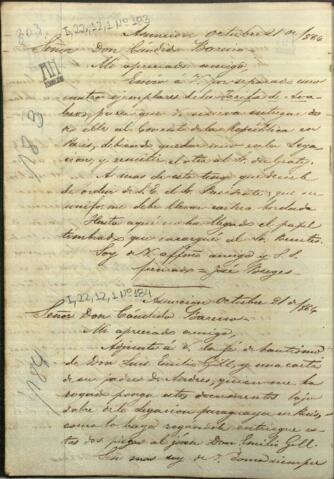 I,22,12,1 Nº 183
Asuncion Octubre 21 de /864
Señor Don Candido Bareiro
Mi apreciado amigo.
Envio á V. por separado unos
cuatro ejemplares de la Tarifa de
para que se sirva entregar dos
de ellos al Consul de la Republica en
Paris, debiendo quedar uno en la Lega-
cion, y remitir el otro al Sr.
A mas de esto tengo que decirle
de orden de S. E. el Sr. Presidente, que su
uniforme debe llevar
Hasta aqui no ha llegado el papel
timbrado que encargué al Sr. Benites.
Soy de V. affmo amigo y S. S.
José Berges
I,22,12,1 Nº 184
Asuncion Octubre 21 de /864
Señor Don Cándido Bareiro.
Mi apreciado amigo,
Adjunto á V. la fé de bautismo
de Don Luis Emilio Gill, y una carta
de su padre Dn Andres, quien me ha
rogado ponga estos documentos bajo
sobre de la Legacion paraguaya en Paris,
como lo hago rogandole entregue es-
tos dos pliegos al jóven Don Emilio Gill.
Sin mas soy de V. como siempre